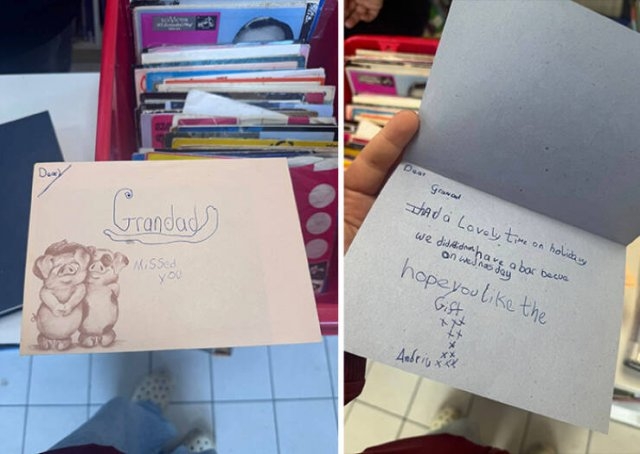 Dear
Grandad
Missed
you
Dear
Grandad
I had a Lovely time on holiday
we did have a bar becue
on wednesday
hope you like the
Gift
xxx
xx
x
xx
xxx